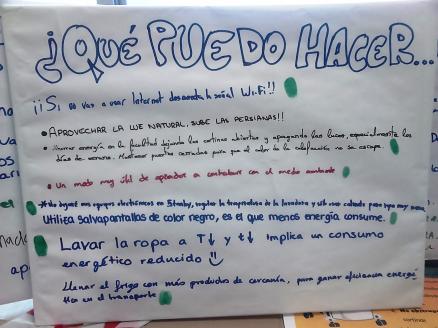 ¿QUÉ PUEDO HACER...
¡¡Si no vas a usar Internet desconecta la señal Wi-Fi!!
• APROVECHAR LA LUZ NATURAL, SUBE LAS PERSIANAS!!
• Ahorrar energía en la facultad dejando las cortinas abiertas y apagando las luces, especialmente los
días de verano. Mantener puertas cerradas para que el calor de la calefacción no se escape.
• Un modo muy útil de aprender a contribuir con el medio ambiente
No dejare mis equipos electrónicos en Standby, regular la temperatura de la lavadora y
Utiliza salvapantallas de color negro, es el que menos energía consume.
Lavar la ropa a T↓ y t↓ implica un consumo
energético reducido
Llenar el frigo con más productos de cercanía, para ganar eficiencia energé-
tica en el transporte